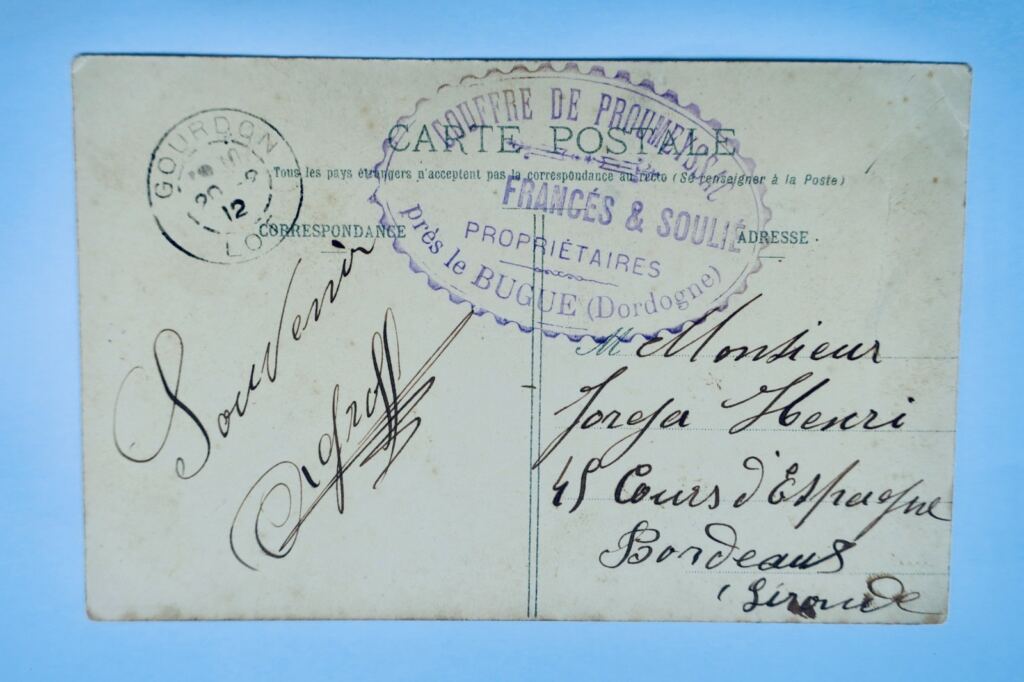 CARTE POSTALE
Tous les pays étrangers n'acceptent pas la correspondance au recto (Se renseigner à la Poste)
CORRESPONDANCE
ADRESSE
GOURDON
12
LOT
GOUFFRE DE PROUMEYSSAC
FRANCÉS & SOULIÉ
PROPRIÉTAIRES
près le BUGUE (Dordogne)
Souvenir
M Monsieur
Henri
45 Cours d'Espagne
Bordeaux
(Gironde